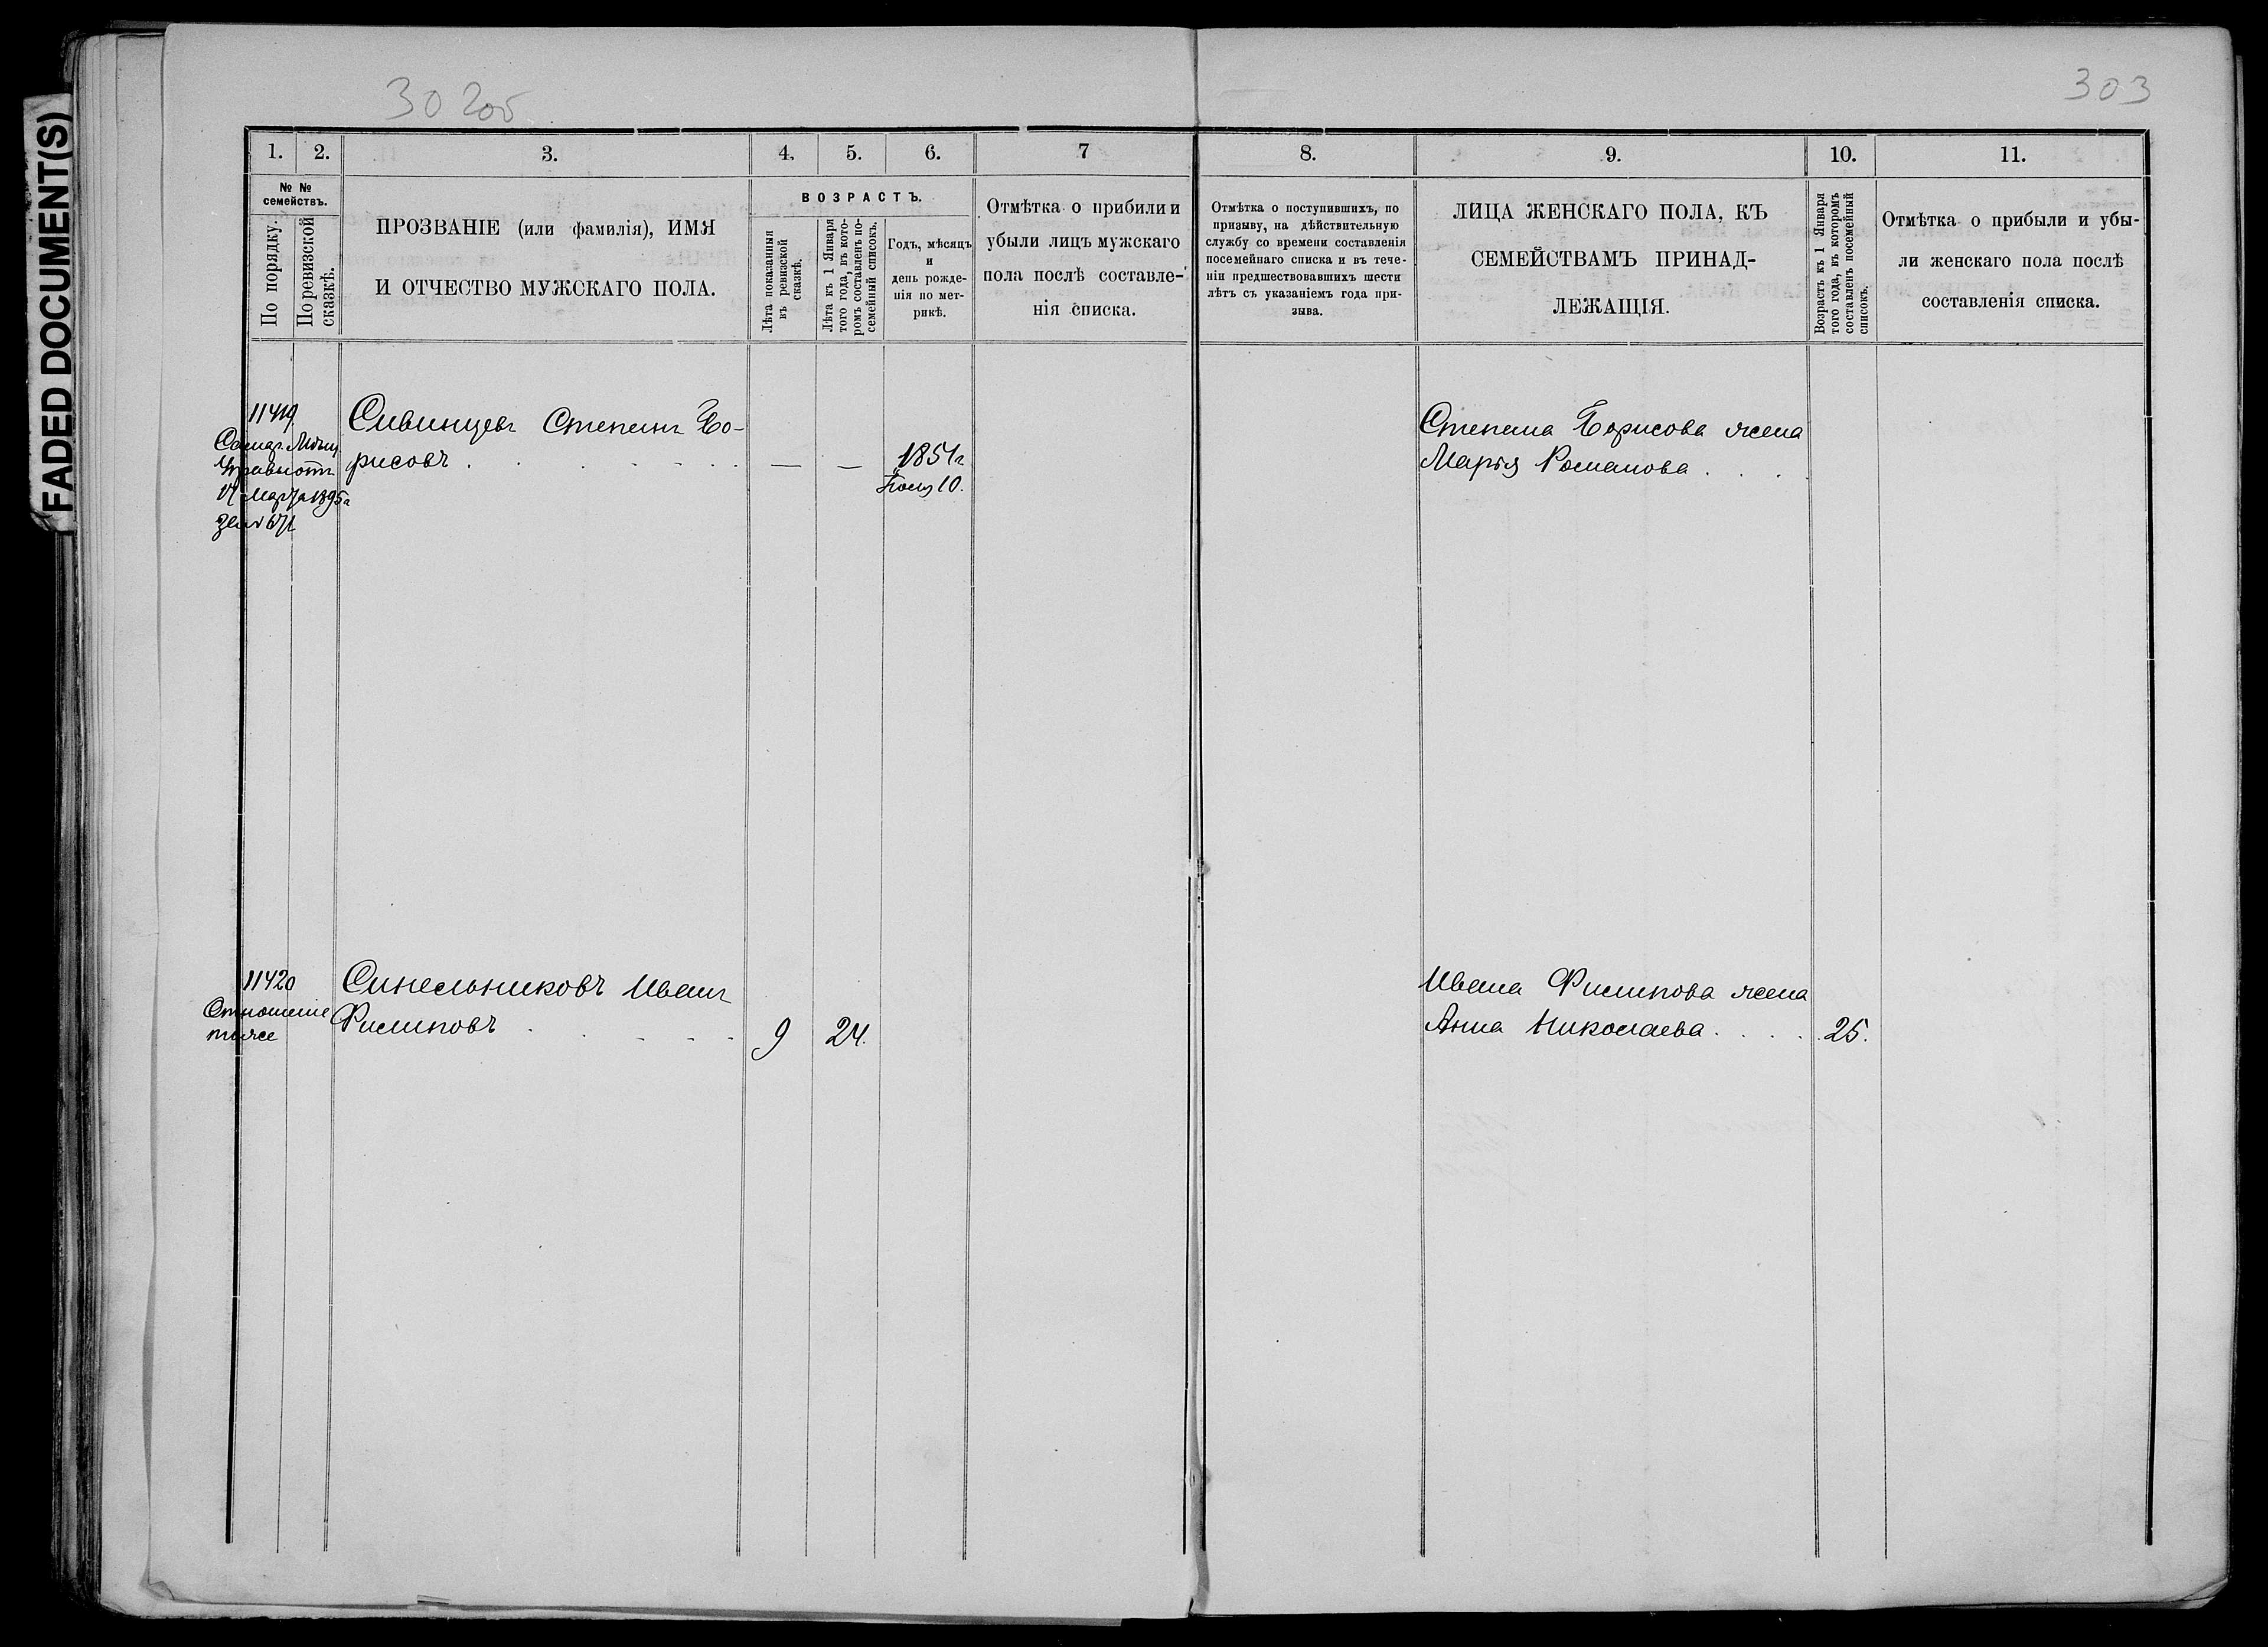 FADED DOCUMENT(S)
302об
303
1. 2. 3. 4. 5. 6. 7
8. 9. 10. 11.
№ №
семействъ.
По порядку.
По ревизской
сказкѣ.
ПРОЗВАНІЕ (или фамилія), ИМЯ
И ОТЧЕСТВО МУЖСКАГО ПОЛА.
ВОЗРАСТЪ.
Лѣта показанныя
въ ревизской
сказкѣ.
Лѣта къ 1 Января
того года, въ кото-
ромъ составленъ по-
семейный списокъ.
Годъ, мѣсяцъ
и
день рожде-
нія по мет-
рикѣ.
Отмѣтка о прибили и
убыли лицъ мужскаго
пола послѣ составле-
нія списка.
Отмѣтка о поступившихъ, по
призыву, на дѣйствительную
службу со времени составленія
посемейнаго списка и въ тече-
ніи предшествовавшихъ шести
лѣтъ съ указаніемъ года при-
зыва.
ЛИЦА ЖЕНСКАГО ПОЛА, КЪ
СЕМЕЙСТВАМЪ ПРИНАД-
ЛЕЖАЩІЯ.
Возрастъ къ 1 Января
того года, въ которомъ
составленъ посемейный
списокъ.
Отмѣтка о прибыли и убы-
ли женскаго пола послѣ
составленія списка.
11419
Самар. Мѣщ.
Управы отъ
Марта 1895г
за № 671
Сивинцевъ Степанъ Бо-
рисовъ . . . . . . . — —
1851г
10.
Степана Борисова жена
Марья Романова . . .
11420
Отношеніе
тоже
Синельниковъ Иванъ
Филиповъ . . . . . . 9 24.
Ивана Филипова жена
Анна Николаева . . . . 25.